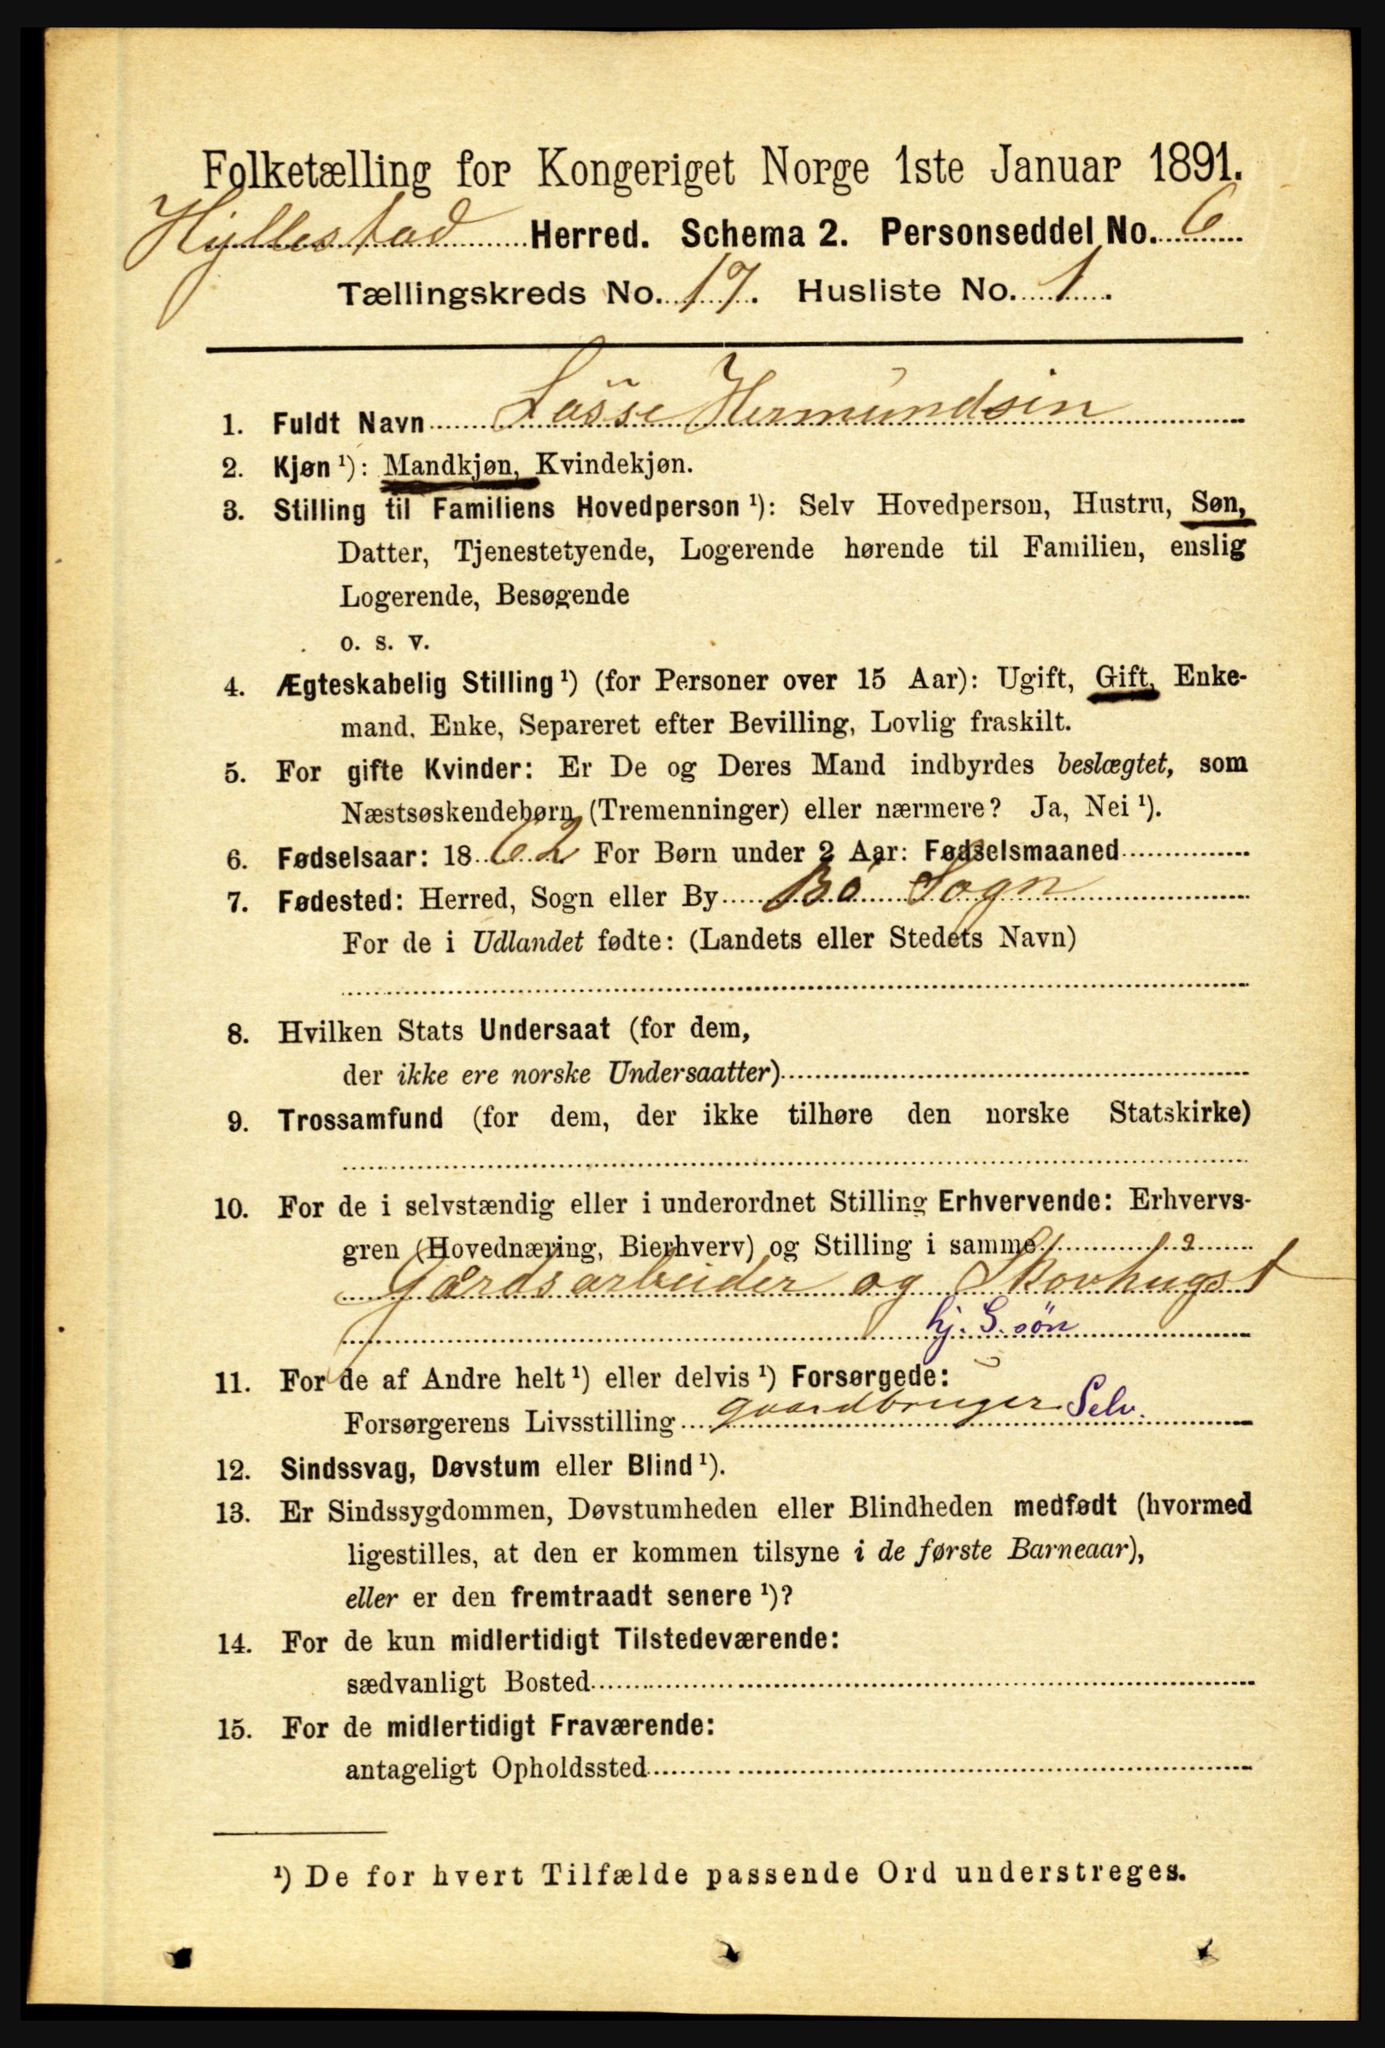 Folketælling for Kongeriget Norge 1ste Januar 1891.
Hyllestad Herred. Schema 2. Personseddel No. 6
Tællingskreds No. 17. Husliste No. 1.
1. Fuldt Navn Lasse Hermundsen
2. Kjøn ¹): Mandkjøn, Kvindekjøn.
3. Stilling til Familiens Hovedperson ¹): Selv Hovedperson, Hustru, Søn,
Datter, Tjenestetyende, Logerende hørende til Familien, enslig
Logerende, Besøgende
o. s. v.
4. Ægteskabelig Stilling ¹) (for Personer over 15 Aar): Ugift, Gift, Enke-
mand, Enke, Separeret efter Bevilling, Lovlig fraskilt.
5. For gifte Kvinder: Er De og Deres Mand indbyrdes beslægtet, som
Næstsøskendebørn (Tremenninger) eller nærmere? Ja, Nei ¹).
6. Fødselsaar: 1862 For Børn under 2 Aar: Fødselsmaaned
7. Fødested: Herred, Sogn eller By Bö Sogn
For de i Udlandet fødte: (Landets eller Stedets Navn)
8. Hvilken Stats Undersaat (for dem,
der ikke ere norske Undersaatter)
9. Trossamfund (for dem, der ikke tilhøre den norske Statskirke)
10. For de i selvstændig eller i underordnet Stilling Erhvervende: Erhvervs-
gren (Hovednæring, Bierhverv) og Stilling i samme
Gårdsarbeider og Skovhugst
hj. S. søn
11. For de af Andre helt ¹) eller delvis ¹) Forsørgede:
Forsørgerens Livsstilling gaardbruger Selv.
12. Sindssvag, Døvstum eller Blind ¹).
13. Er Sindssygdommen, Døvstumheden eller Blindheden medfødt (hvormed
ligestilles, at den er kommen tilsyne i de første Barneaar),
eller er den fremtraadt senere ¹)?
14. For de kun midlertidigt Tilstedeværende:
sædvanligt Bosted
15. For de midlertidigt Fraværende:
antageligt Opholdssted
¹) De for hvert Tilfælde passende Ord understreges.